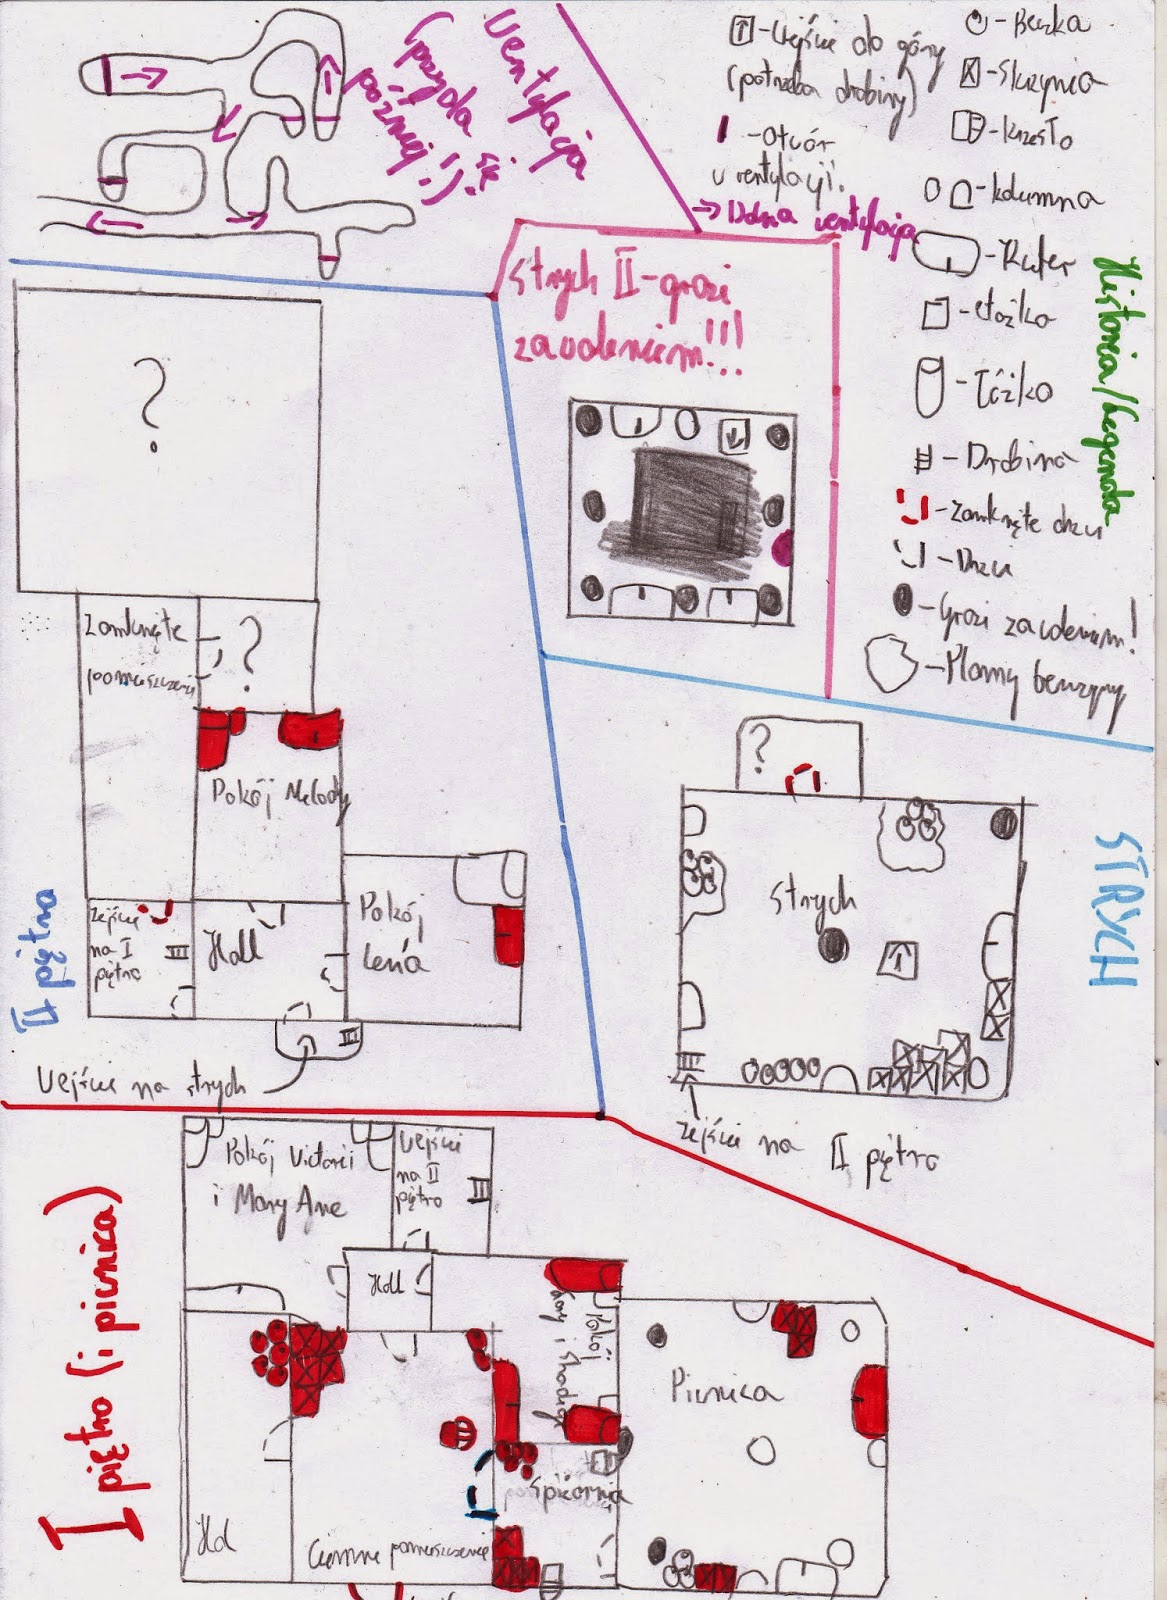 Wentylacja
(przyda się
później!)
- Wejście do góry
(potrzeba drabiny)
- Otwór
w wentylacji.
→ Dolna wentylacja
- Beczka
- Skrzynia
- Krzesło
- kolumna
- Kufer
- Łóżko
- Drabina
- Zamknięte drzwi
- Drzwi
- Grozi zawaleniem!
- Plamy benzyny
Historia/Legenda
Strych II - grozi
zawaleniem!!!
?
Zamknięte
pomieszczeni
?
Pokój Melody
zejście
na I
piętro
Holl
Pokój
Lena
II piętro
Wejście na strych
STRYCH
?
Strych
zejście na II piętro
I piętro (i piwnica)
Pokój Victorii
i Mary Ane
Wejście
na II
piętro
Holl
Pokój
Piwnica
Spiżarnia
Hol
Ciemne pomieszczenie